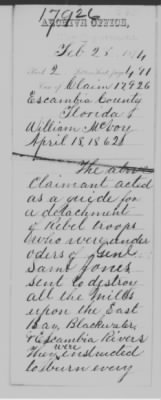 17926
ARCHIVE OFFICE,
Feb 28
2
Claim 17926
Escambia County
Florida
William McVoy
April 18, 1862
The above
Claimant acted
as a guide for
a detachment
of Rebel troops
who were under
oders of Genl
Saml Jones
sent to destroy
all the mills
upon the East
Bay, Blackwater,
& Escambia Rivers
They were instructed
to burn every